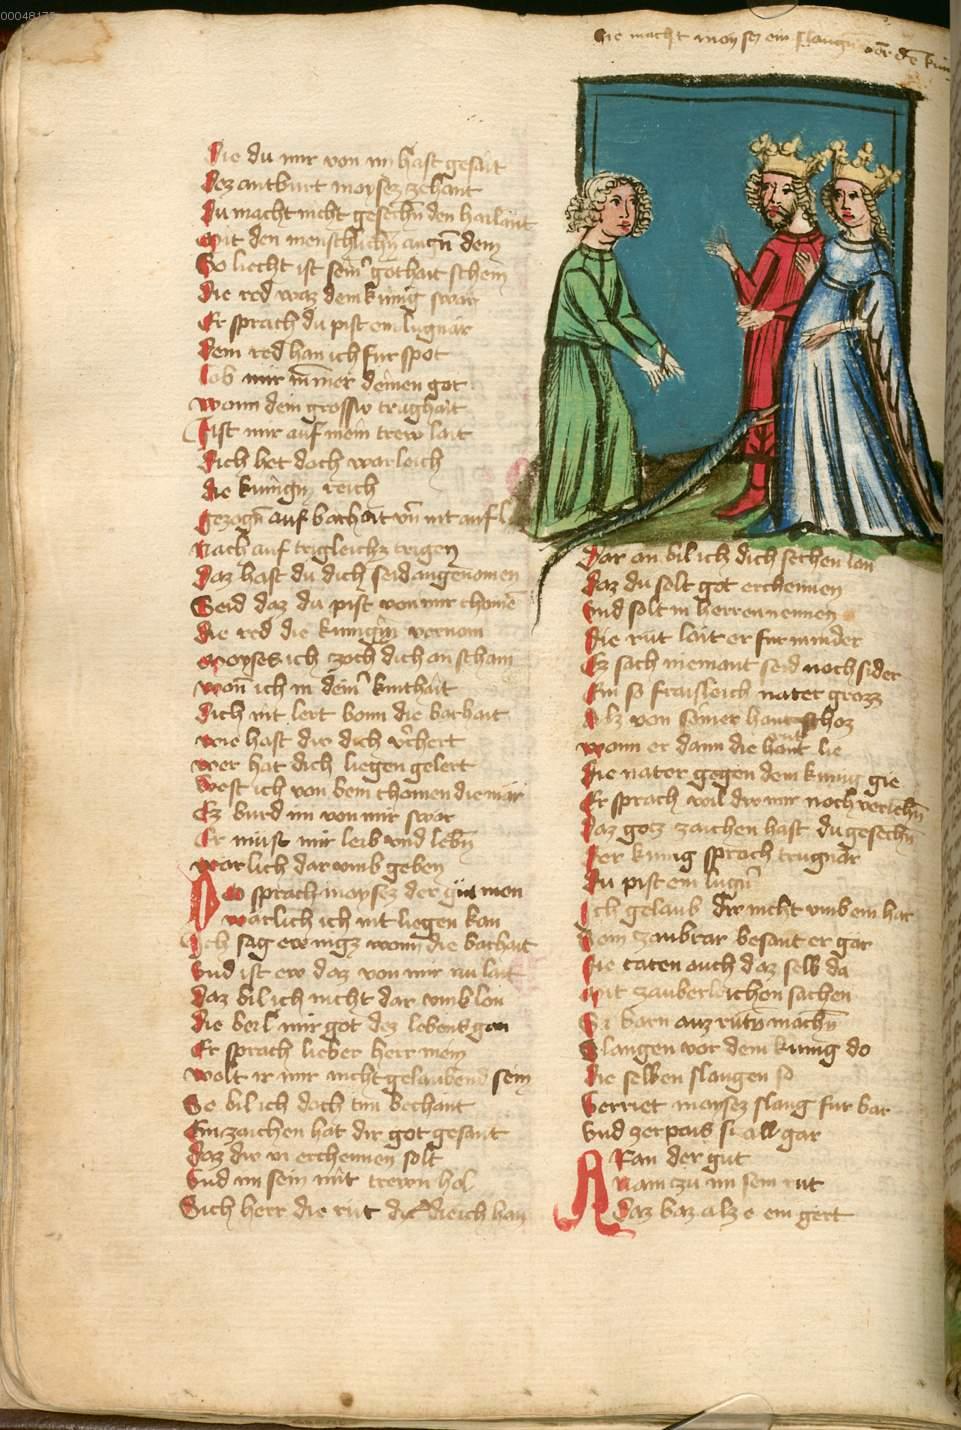 00048175
Hie macht moysez ein slangen vor dem kun
Die du mir von im hast gesait
Dez antburt moysez zehant
Du macht nicht gesechn den hailant
Mit den menschlichn augn dein
So liecht ist seinr gothait schein
Die red waz dem kunig swar
Er sprach du pist ein lugnar
Dein red han ich fur spot
Lob mir nimer deinen got
wann dein grossw trughait
Ist mir auf mein trew lait
Dich het doch warleich
die kunigin reich
Gezogn auf barhait vn nit auf l
Nach auf trigleichz trigen
Daz hast du dich seid angenomen
Seid daz du pist von mir chomen
Die red die kunigin vernam
Moyses ich zoch dich an scham
wan ich in deinr kinthait
Dich nit lert bann die barhait
wie hast dw dich verchert
wer hat dich liegen gelert
West ich von bem chomen die mar
Ez burd im von mir swar
Er must mir leib vnd lebn
warlich darumb geben
Do sprach moysez der gut man
warlich ich nit liegen kan
Ich sag ew nigz wann die barhait
Vnd ist ew daz von mir nu lait
Daz bil ich nicht dar vmb lon
die beil mir got dez lebens gan
Er sprach lieber herr mein
wolt ir mir nicht gelaubend sein
So bil ich doch tun bechant
Ein zaichen hat dir got gesant
daz dw in erchennen solt
Vnd im sein mit trewn hol
Sich herr die rut die ich han
Dar an bil ich dich sechen lan
Daz du solt got erchennen
Vnd solt in herren nennen
Die rut lait er fur nider
Ez sach niemant seid noch sider
Ein so fraisleich nater grozz
Alz von seiner hant schoz
wann er dann die hant rut lie
Die nater gegen dem kunig gie
Er sprach wil dw mir noch veriehn
Daz gotz zaichen hast du gesechn
Der kunig sprach trugnar
Du pist ein lugnr
Ich gelaub dir nicht vmb ein har
Sein zaubrar besant er gar
Die taten auch daz selb da
Mit zauberleichen sachen
Si barn auz rutn machn
Slangen vor dem kunig do
Die selben slangen so
Verriet moysez slang fur bar
Vnd zerpais si all gar
Aran der gut
Nam zu im sein rut
Daz baz alz e ein gert